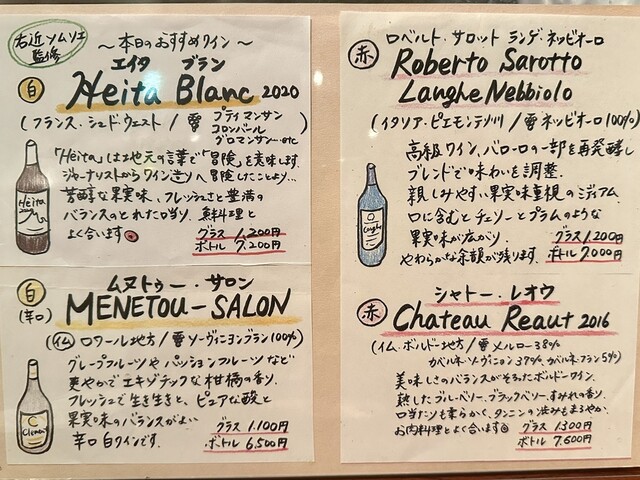 右近ソムリエ
監修
〜本日のおすすめワイン〜
エイタ ブラン
白 Heita Blanc 2020
(フランス・シュド・ウェスト/葡 プティマンサン
コロンバール
グロマンサン…etc)
「Heita」は地元の言葉で「冒険」を意味します。
ジャーナリストからワイン造りへ冒険したことより…
芳醇な果実味、フレッシュさと豊満の
バランスのとれた口当り。魚料理と
よく合います
グラス 1,200円
ボトル 7,200円
Heita
ムヌトゥー・サロン
白 MENETOU-SALON
(辛口)
(仏 ロワール地方/葡 ソーヴィニヨンブラン100%)
グレープフルーツやパッションフルーツなど
爽やかでエキゾチックな柑橘の香り。
フレッシュで生き生きと、ピュアな酸と
果実味のバランスがよい
辛口白ワインです。
グラス 1,100円
ボトル 6,500円
Clement
ロベルト・サロット ランゲ・ネッビオーロ
赤 Roberto Sarotto
Langhe Nebbiolo
(イタリア・ピエモンテ州/葡 ネッビオーロ100%)
高級ワイン、バローロの一部を再発酵し
ブレンドで味わいを調整。
親しみやすい果実味重視のミディアム。
口に含むとチェリーとプラムのような
果実味が広がり、
やわらかな余韻が残ります。
グラス 1,200円
ボトル 7,000円
Langhe
シャトー・レオウ
赤 Chateau Reaut 2016
(仏・ボルドー地方/葡 メルロー38%
カベルネ・ソーヴィニヨン37%、カベルネ・フラン5%)
美味しさのバランスがそろったボルドーワイン。
熟したブルーベリー、ブラックベリー、すみれの香り。
口当たりも柔らかく、タンニンの渋みもまろやか。
お肉料理とよく合います
グラス 1,300円
ボトル 7,600円